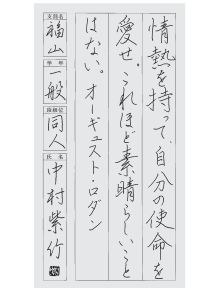 情熱を持って、自分の使命を
愛せ。これほど素晴らしいこと
はない。オーギュスト・ロダン
支部名
福山
学年
一般
段級位
同人
氏名
中村紫竹